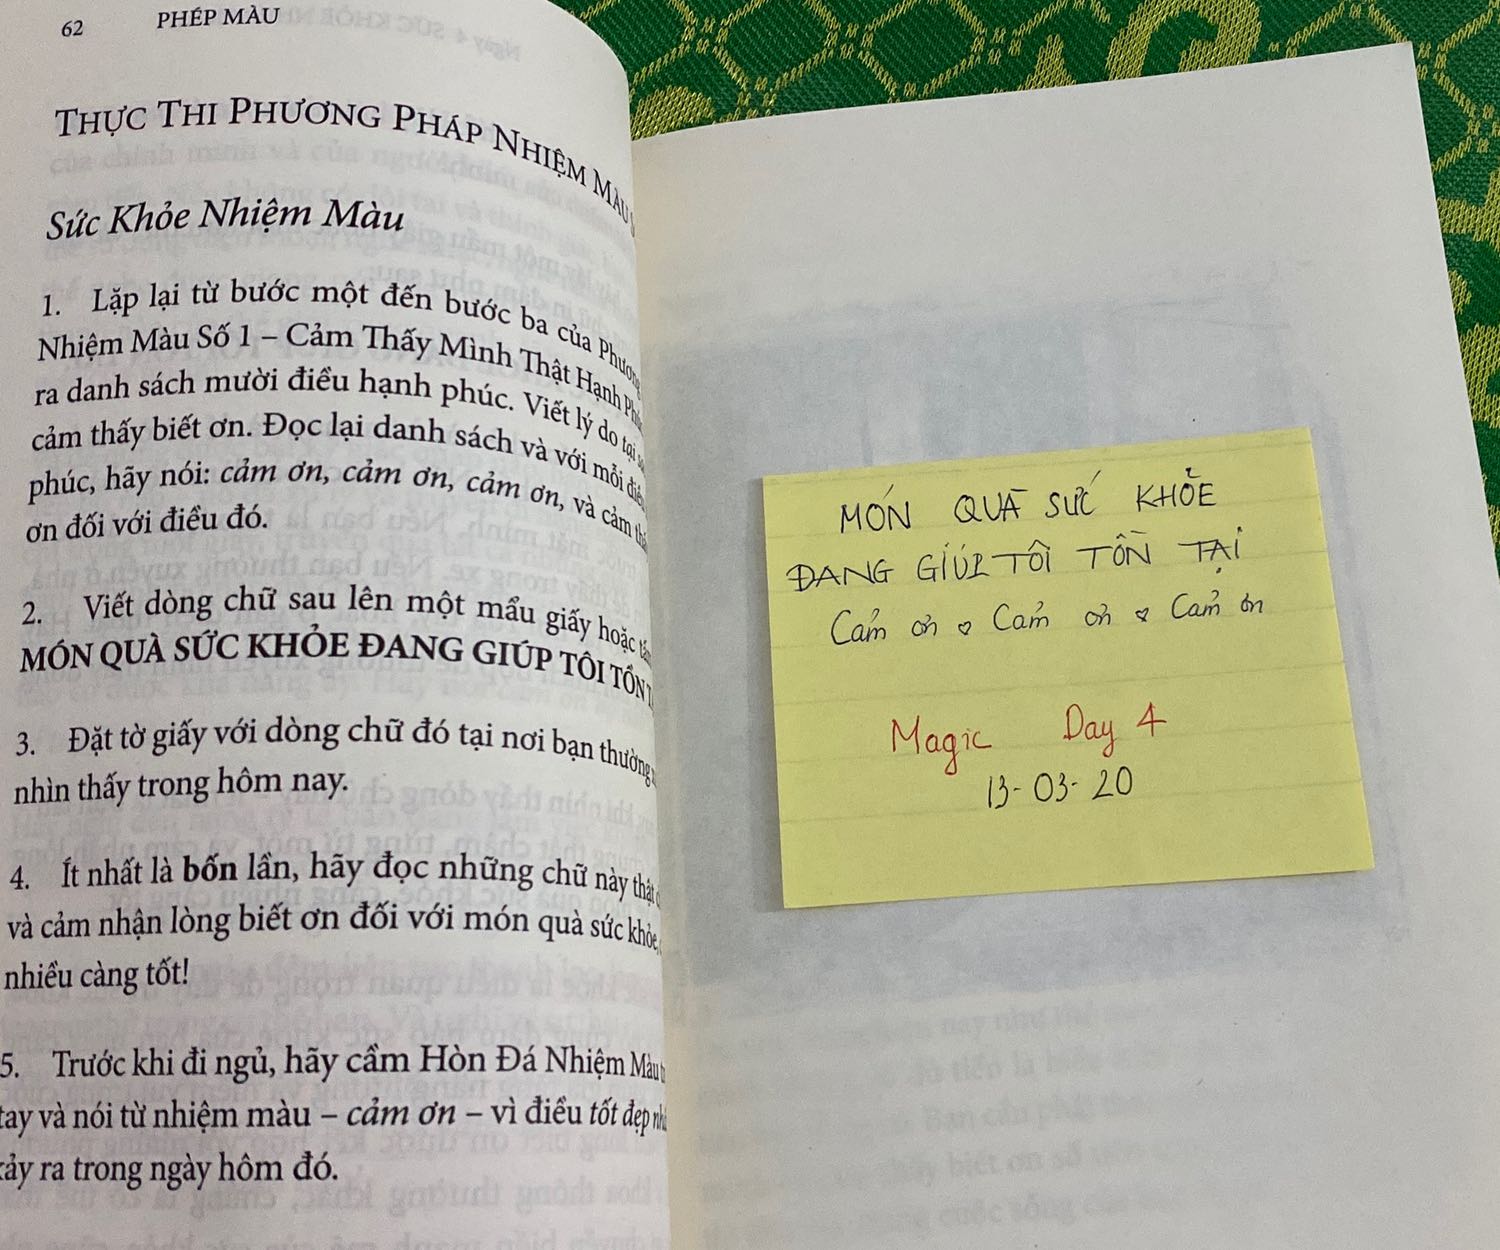 62 PHÉP MÀU
THỰC THI PHƯƠNG PHÁP NHIỆM MÀU
Sức Khỏe Nhiệm Màu
1. Lặp lại từ bước một đến bước ba của Phương
Nhiệm Màu Số 1 – Cảm Thấy Mình Thật Hạnh
ra danh sách mười điều hạnh phúc. Viết lý do tại
cảm thấy biết ơn. Đọc lại danh sách và với mỗi
phúc, hãy nói: cảm ơn, cảm ơn, cảm ơn, và cảm
ơn đối với điều đó.
2. Viết dòng chữ sau lên một mẩu giấy hoặc
MÓN QUÀ SỨC KHỎE ĐANG GIÚP TÔI TỒN
3. Đặt tờ giấy với dòng chữ đó tại nơi bạn thường
nhìn thấy trong hôm nay.
4. Ít nhất là bốn lần, hãy đọc những chữ này thật
và cảm nhận lòng biết ơn đối với món quà sức khỏe,
nhiều càng tốt!
5. Trước khi đi ngủ, hãy cầm Hòn Đá Nhiệm Màu
tay và nói từ nhiệm màu – cảm ơn – vì điều tốt đẹp
xảy ra trong ngày hôm đó.
MÓN QUÀ SỨC KHỎE
ĐANG GIÚP TÔI TỒN TẠI
Cảm ơn Cảm ơn Cảm ơn
Magic Day 4
13-03-20